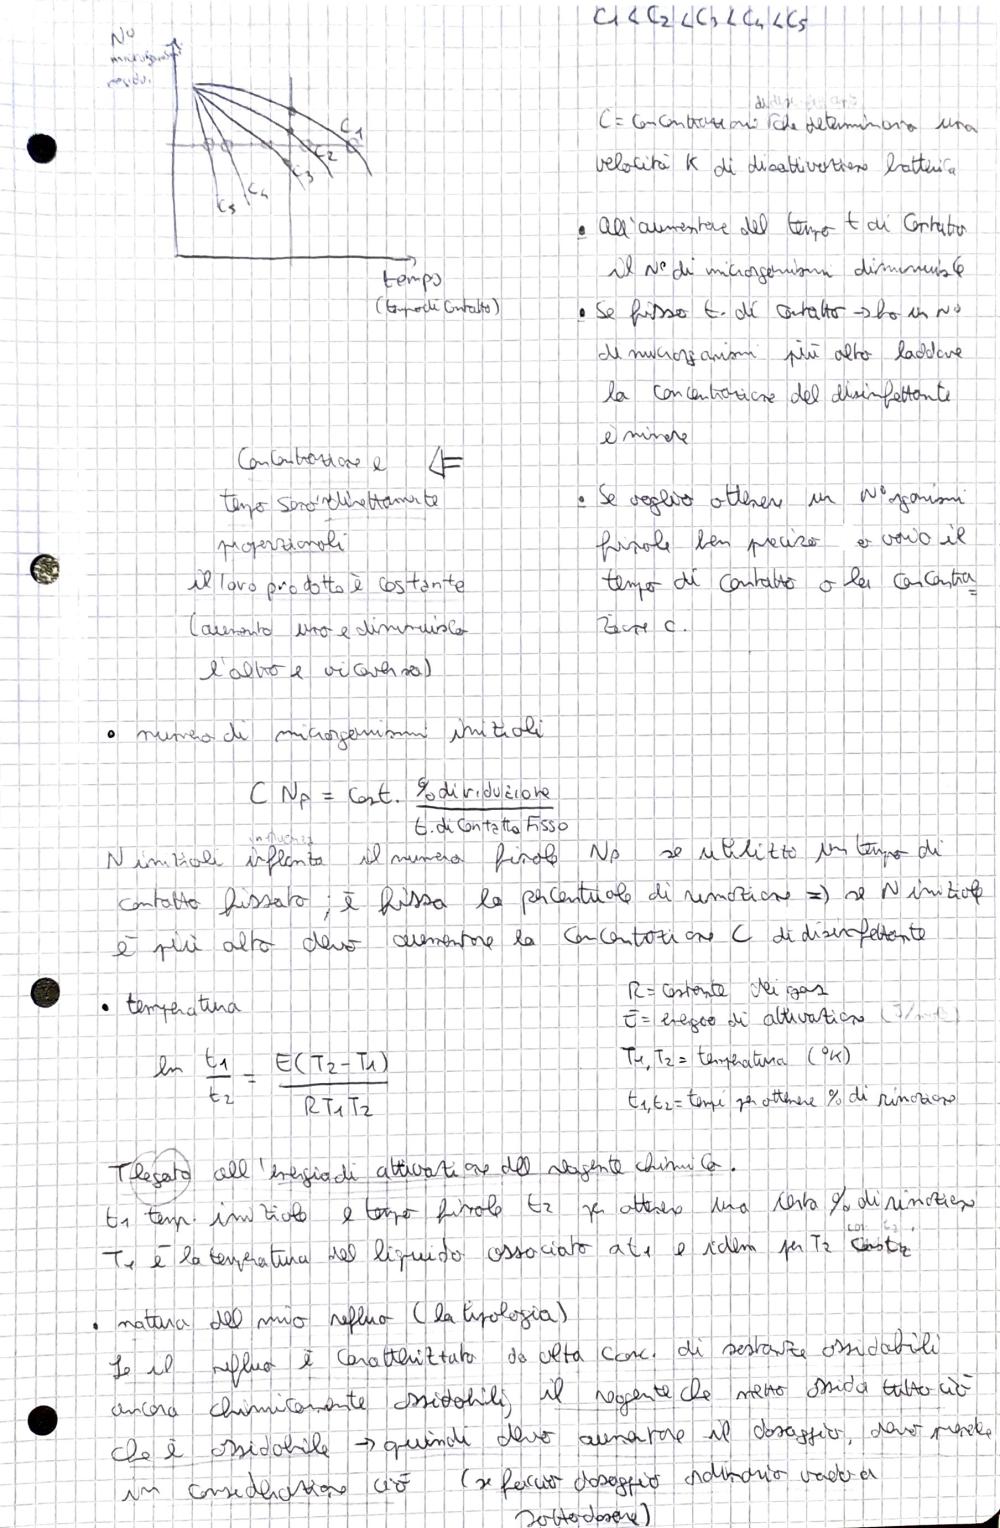 C1 < C2 < C3 < C4 < C5
N°
microrganismi
residui
C1
C2
C3
C4
C5
tempo
(tempo di contatto)
C = concentrazioni che determinano una
velocità K di disattivazione batterica
• all'aumentare del tempo t di contatto
il N° di microrganismi diminuisce
• Se fisso t. di contatto → ho un N°
di microrganismi più alto laddove
la concentrazione del disinfettante
è minore
• Se voglio ottenere un N° organismi
finale ben preciso o vario il
tempo di contatto o la concentra=
zione C.
⇐
Concentrazione e
tempo sono direttamente
proporzionali
il loro prodotto è costante
(aumento uno e diminuisce
l'altro e viceversa)
• numero di microrganismi iniziali
C Np = cost. % di riduzione
t. di contatto fisso
influenza
N iniziali il numero finale Np se utilizzo un tempo di
contatto fissato; è fissa la percentuale di rimozione => se N iniziale
è più alto devo aumentare la concentrazione C di disinfettante
• temperatura
ln t1/t2 = E(T2-T1)/RT1T2
R = costante dei gas
E = energia di attivazione (J/mole)
T1, T2 = temperatura (°K)
t1, t2 = tempi per ottenere % di rimozione
T legato all'energia di attivazione del reagente chimico.
t1 temp. iniziale e tempo finale t2 per ottenere una certa % di rimozione
T1 è la temperatura del liquido associato a t1 e idem per T2 con t2
• natura del mio refluo (la tipologia)
Se il refluo è caratterizzato da alta conc. di sostanze ossidabili
ancora chimicamente ossidabili, il reagente che metto ossida tutto ciò
che è ossidabile → quindi devo aumentare il dosaggio, devo prendere
in considerazione ciò (se faccio dosaggio ordinario vado a
sottodosare)